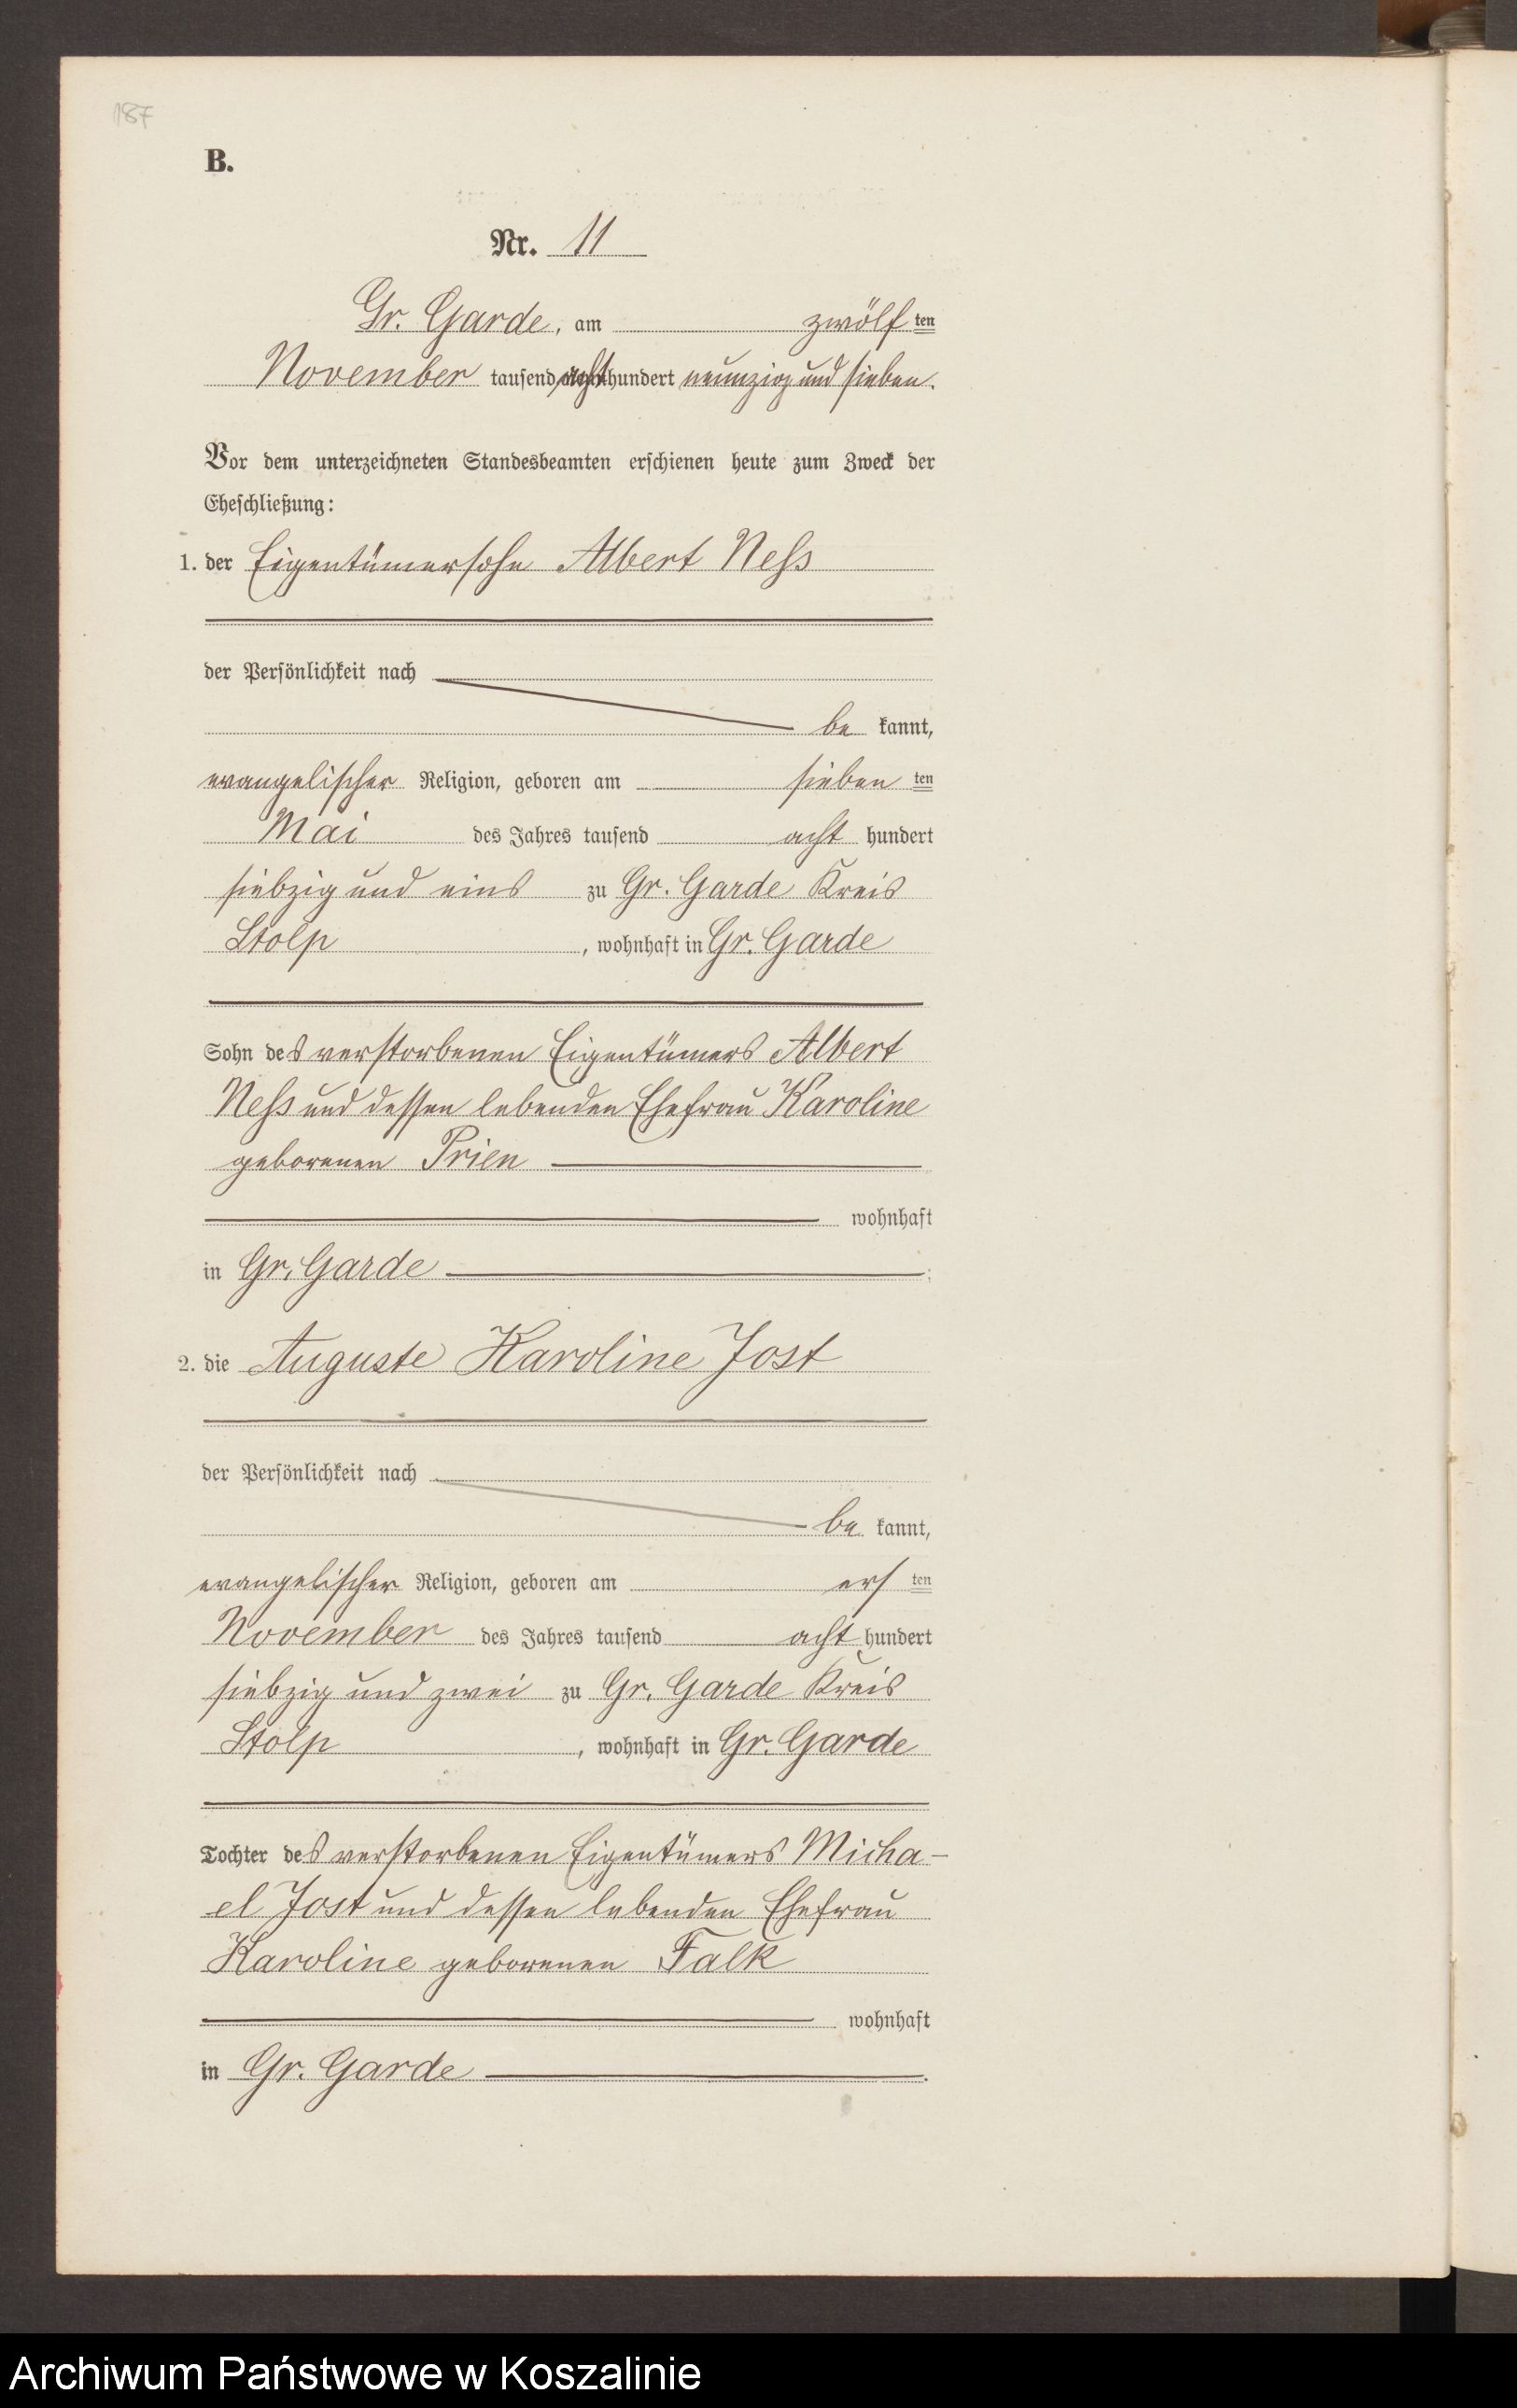 187
B.
Nr. 11
Gr. Garde, am zwölf ten
November tausend acht hundert neunzig und sieben.
Vor dem unterzeichneten Standesbeamten erschienen heute zum Zweck der
Eheschließung:
1. der Eigentümersohn Albert Neß
der Persönlichkeit nach
be kannt,
evangelischer Religion, geboren am sieben ten
Mai des Jahres tausend acht hundert
siebzig und eins zu Gr. Garde Kreis
Stolp , wohnhaft in Gr. Garde
Sohn des verstorbenen Eigentümers Albert
Neß und dessen lebenden Ehefrau Karoline
geborenen Prien
wohnhaft
in Gr. Garde ;
2. die Auguste Karoline Jost
der Persönlichkeit nach
be kannt,
evangelischer Religion, geboren am ers ten
November des Jahres tausend acht hundert
siebzig und zwei zu Gr. Garde Kreis
Stolp , wohnhaft in Gr. Garde
Tochter des verstorbenen Eigentümers Micha-
el Jost und dessen lebenden Ehefrau
Karoline geborenen Falk
wohnhaft
in Gr. Garde .
Archiwum Państwowe w Koszalinie